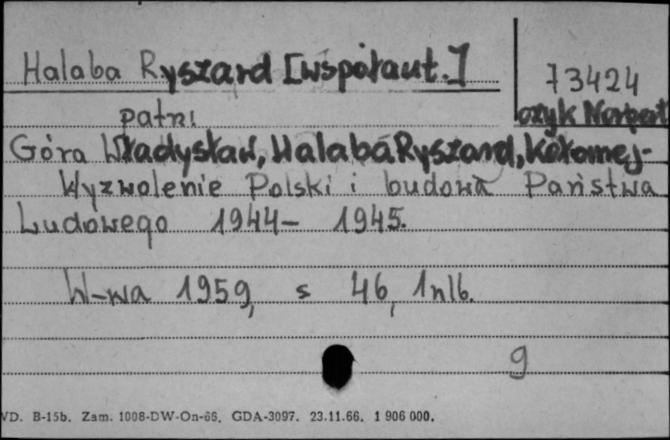 Halaba Ryszard [współaut.]
73424
patrz
Góra Władysław, Halaba Ryszard, Kołomej-
czyk Norbert
Wyzwolenie Polski i budowa Państwa
Ludowego 1944- 1945.
W-wa 1959, s 46, 1nlb.
9
VD. B-15b. Zam. 1008-DW-On-66. GDA-3097. 23.11.66. 1 906 000.